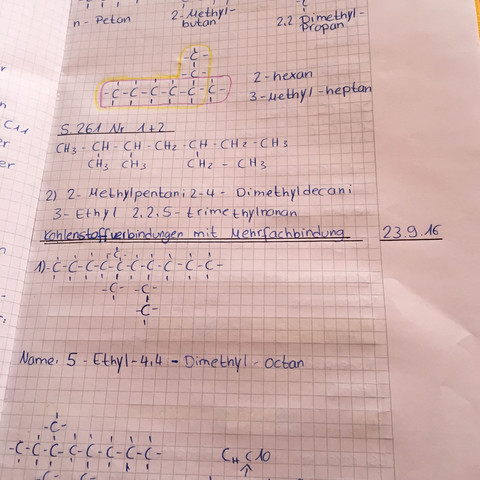 n - Petan
2-Methyl-
butan
2,2 Dimethyl-
Propan
2-hexan
3-Methyl-heptan
S. 261 Nr 1+2
CH₃ - CH - CH - CH₂ - CH - CH₂ - CH₃
CH₃ CH₃ CH₂ - CH₃
2) 2- Methylpentan; 2-4- Dimethyldecan;
3-Ethyl 2.2.5- trimethylnonan
Kohlenstoffverbindungen mit Mehrfachbindung 23.9.16
1) -C-C-C-C-C-C-C-C-C-C-
-C- -C-
-C-
Name: 5 - Ethyl-4,4 - Dimethyl - octan
-C-
-C-C-C-C-C-C-C-C-